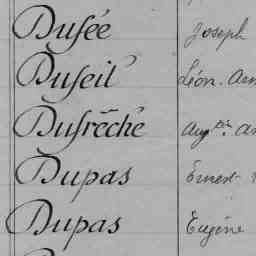 Dufée Joseph
Dufeil Léon
Dufrêché Aug.
Dupas Ernest
Dupas Eugène